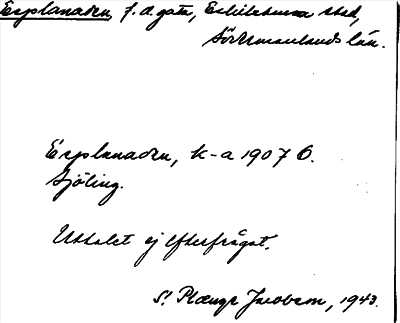 Esplanaden, f. d. gata, Eskilstuna stad,
Södermanlands län.
Esplanaden, k-a 1907 O.
Sjöling.
Uttalet ej efterfrågat.
St Plænge Jacobson, 1943.